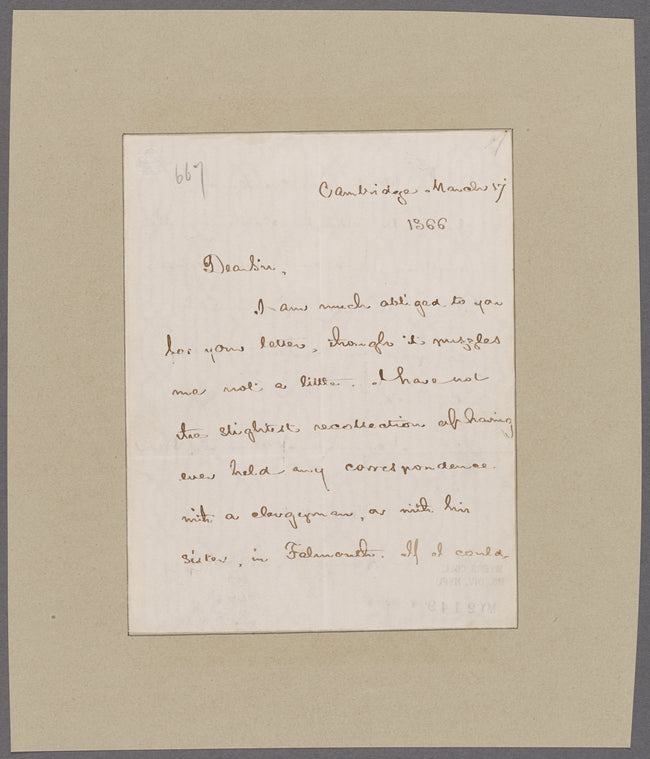 667
Cambridge March 17
1866
Dear Sir,
I am much obliged to you
for your letter, though it puzzles
me not a little. I have not
the slightest recollection of having
ever held any correspondence
with a clergyman, or with his
sister, in Falmouth. If I could